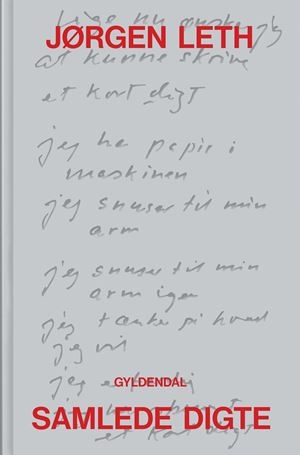 JØRGEN LETH
Lige nu ønsker jeg
at kunne skrive
et kort digt
jeg har papir i
maskinen
jeg snuser til min
arm
jeg snuser til min
arm igen
jeg tænker på hvad
jeg vil
jeg
GYLDENDAL
SAMLEDE DIGTE
et kort digt